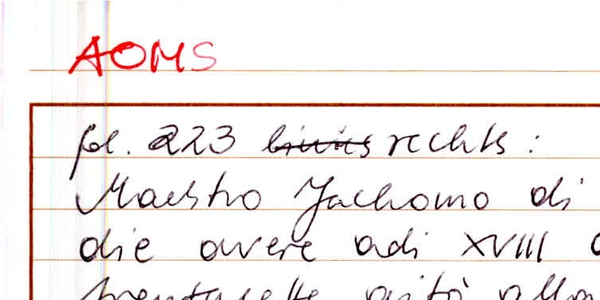 AOMS
fol. 223 links rechts :
Maestro Jachomo di
die avere adi XVIII
trentasette